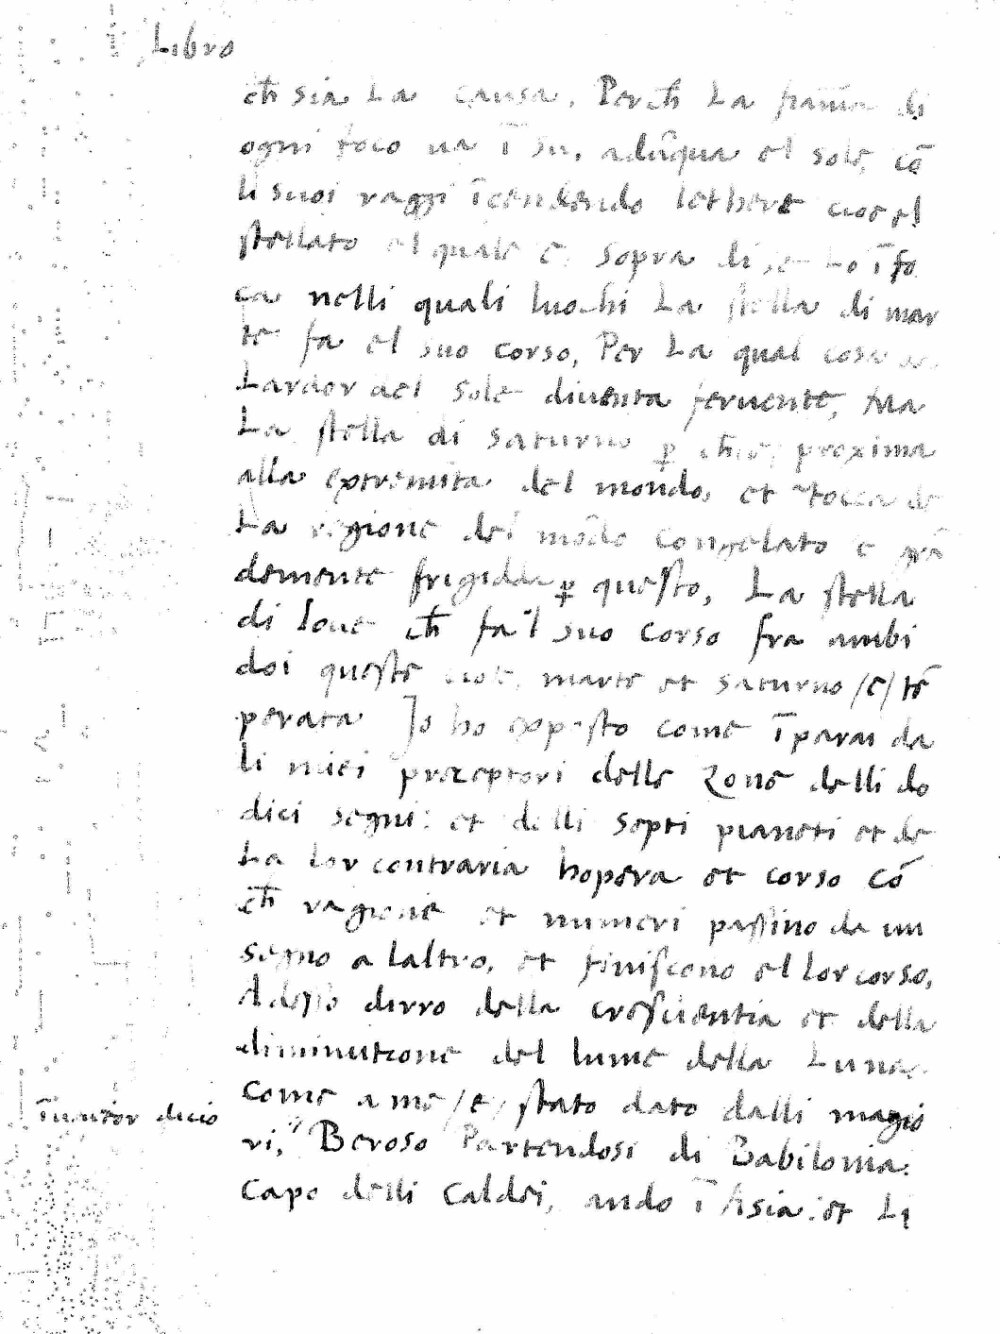 Libro
ch̄ sia La causa, Perch̄ La fiam̄a di
ogni foco ua ī su, adūqua el sole, cō
li suoi raggi īcendendo lethere cioe el
stellato el quale e sopra di se Lo īfo
ca nelli quali luochi La stella di mar
te fa el suo corso, Per La qual cosa
Lardor del sole diuenta feruente, Ma
La stella di saturno ꝑ ch̄ e proxima
alla extremita del mondo, et tocca de
La regione del mōdo congelato e grā
demente frigidda ꝑ questo, La stella
di Ioue ch̄ fa il suo corso fra ambi
doi queste cioe, marte et saturno /e/ tē
perata Jo ho exposto come īparai da
li miei preceptori delle zone delli do
dici segni: et delli septi pianeti et de
La lor contraria hopera et corso cō
ch̄ ragione et numeri passino da un
segno a laltro, et finiscono el lor corso,
Adesso dirro della crescientia et della
diminutione del lume della Luna,
Come a me /e/ stato dato dalli magio
ri, " Beroso Partendosi di Babilonia:
Capo delli Caldei, ando ī Asia: et Li